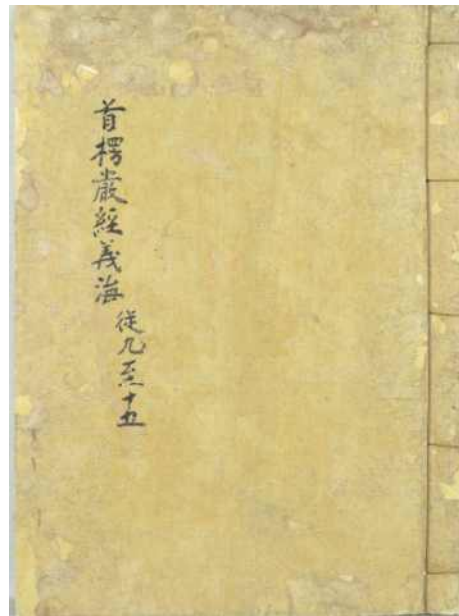 首楞嚴經義海 從九至十五